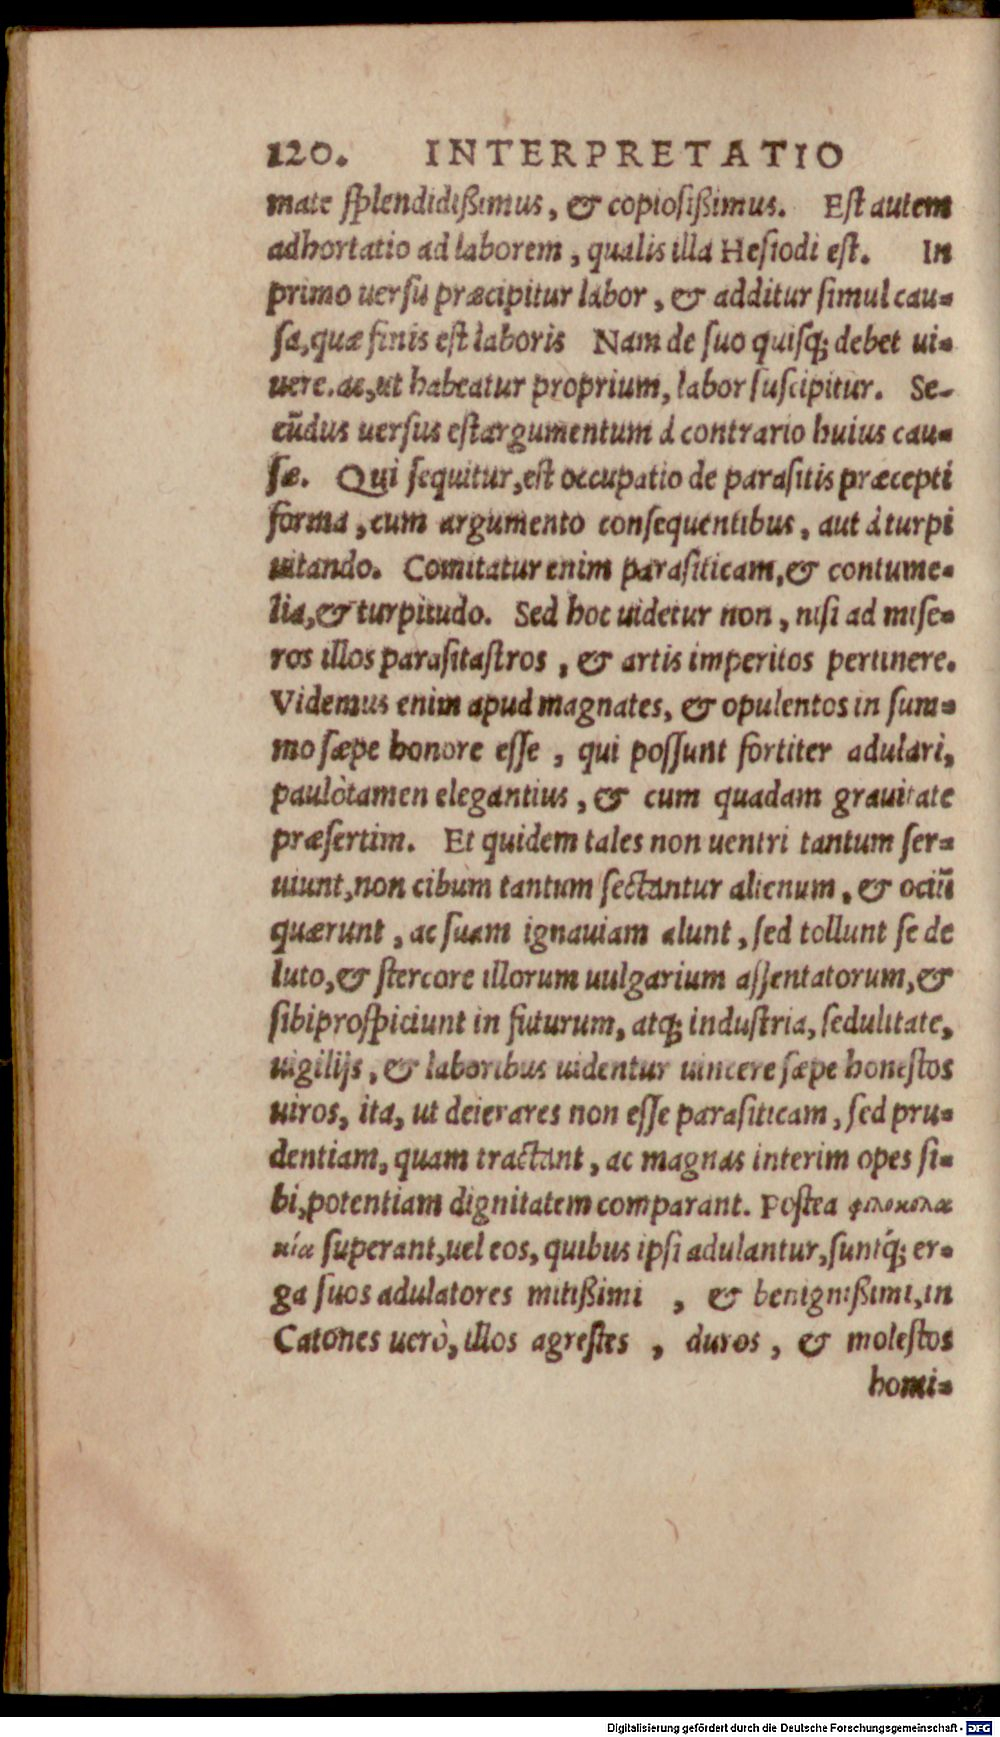 120. INTERPRETATIO
mate ſplendidißimus, & copioſißimus. Eſt autem
adhortatio ad laborem, qualis illa Heſiodi eſt. In
primo uerſu præcipitur labor, & additur ſimul cau=
ſa, quæ finis eſt laboris Nam de ſuo quiſq; debet ui=
uere. ac, ut habeatur proprium, labor ſuſcipitur. Se-
cũdus uerſus eſt argumentum à contrario huius cau=
ſæ. Qui ſequitur, eſt occupatio de paraſitis præcepti
forma, cum argumento conſequentibus, aut à turpi
uitando. Comitatur enim paraſiticam, & contume=
lia, & turpitudo. Sed hoc uidetur non, niſi ad miſe=
ros illos paraſitaſtros, & artis imperitos pertinere.
Videmus enim apud magnates, & opulentos in ſum=
mo ſæpe honore eſſe, qui poſſunt fortiter adulari,
paulò tamen elegantius, & cum quadam grauitate
præſertim. Et quidem tales non uentri tantum ſer=
uiunt, non cibum tantum ſectantur alienum, & ociũ
quærunt, ac ſuam ignauiam alunt, ſed tollunt ſe de
luto, & ſtercore illorum uulgarium aſſentatorum, &
ſibi proſpiciunt in futurum, atq; induſtria, ſedulitate,
uigilijs, & laboribus uidentur uincere ſæpe honeſtos
uiros, ita, ut deierares non eſſe paraſiticam, ſed pru=
dentiam, quam tractant, ac magnas interim opes ſi=
bi, potentiam dignitatem comparant. Poſtea φιλοκολα
κία ſuperant, uel eos, quibus ipſi adulantur, ſuntq́; er=
ga ſuos adulatores mitißimi, & benignißimi, in
Catones uerò, illos agreſtes, duros, & moleſtos
homi=
Digitalisierung gefördert durch die Deutsche Forschungsgemeinschaft - DFG